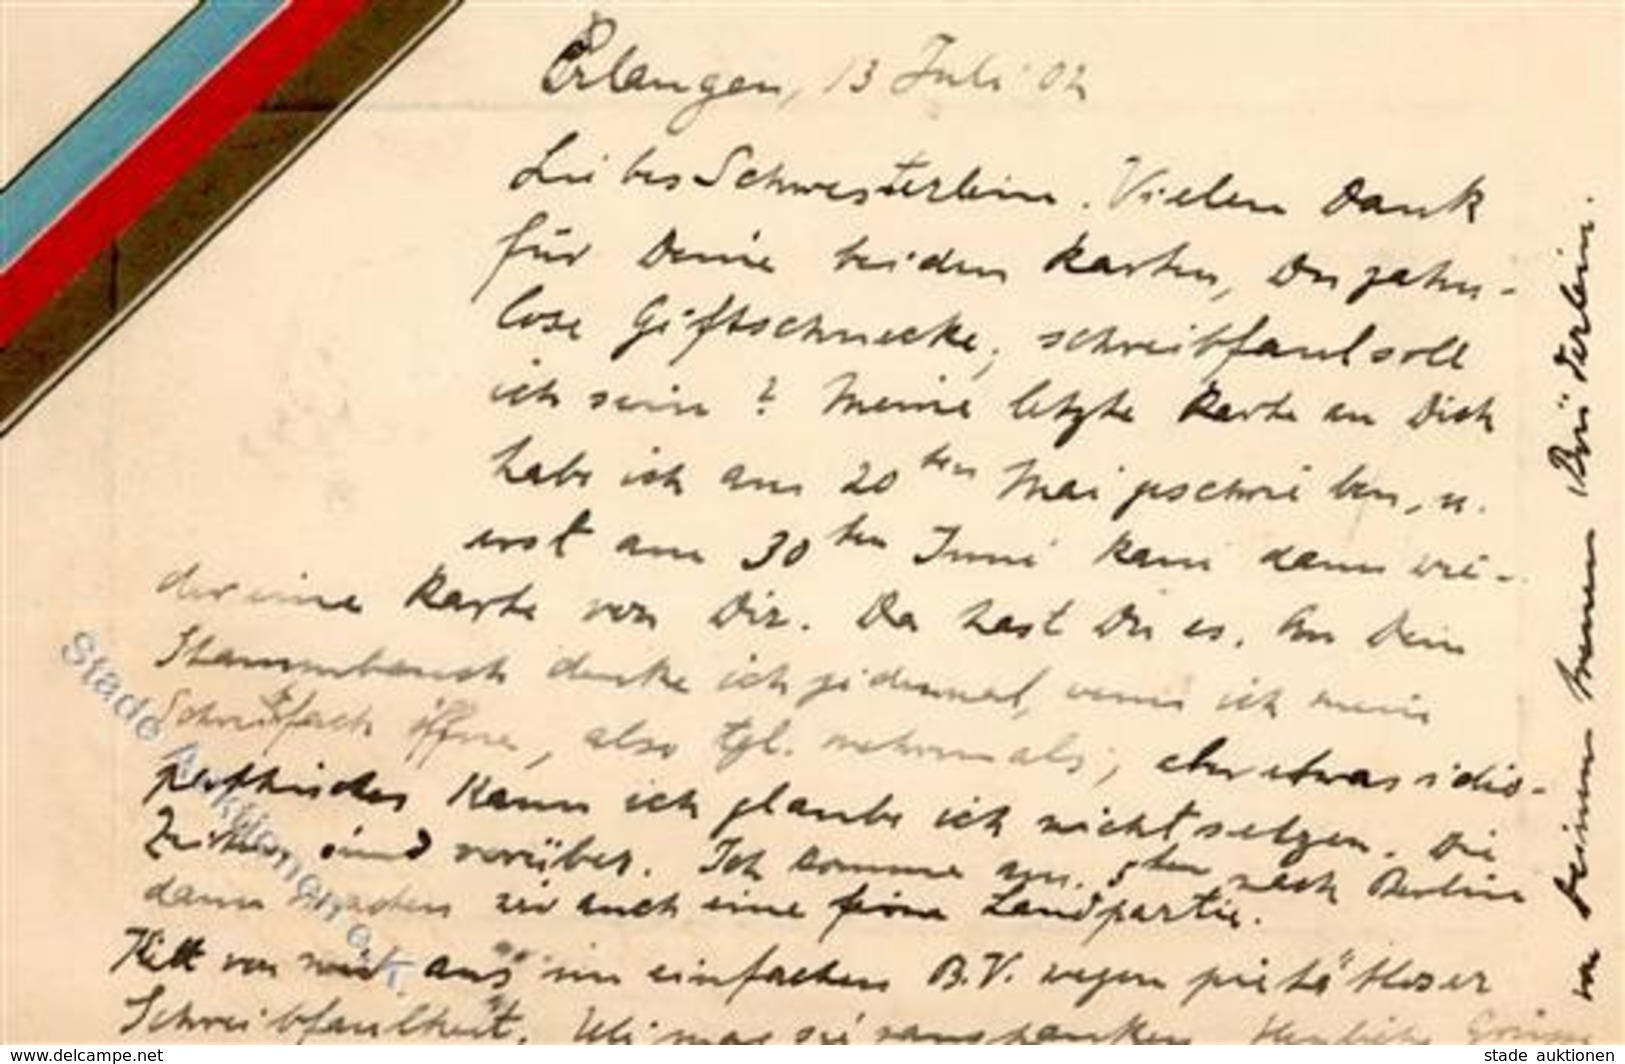 Erlangen, 13 Juli 02
Liebes Schwesterlein. Vielen Dank
für Deine beiden Karten, Du zahn-
lose Giftschnecke, schreibfaul soll
ich sein? Meine letzte Karte an Dich
habe ich am 20ten Mai geschrieben, u.
erst am 30ten Juni kam dann wie-
der eine Karte von Dir. Da hast Du es. An Dein
Stammbuch denke ich jedesmal, wenn ich mein
Schreibfach öffne, also tgl. mehrmals; aber etwas idio-
pathisches kann ich glaube ich nicht setzen. Die
Zeiten sind vorüber. Ich komme am 5ten nach Berlin
dann machen wir auch eine feine Landpartie.
Kitt von mir aus im einfachen B.V. wegen pietätloser
Schreibfaulheit. Herzliche Grüsse
von Deinem treuen Brüderlein.
Stade Auktionen e.K
www.delcampe.net
stade auktionen